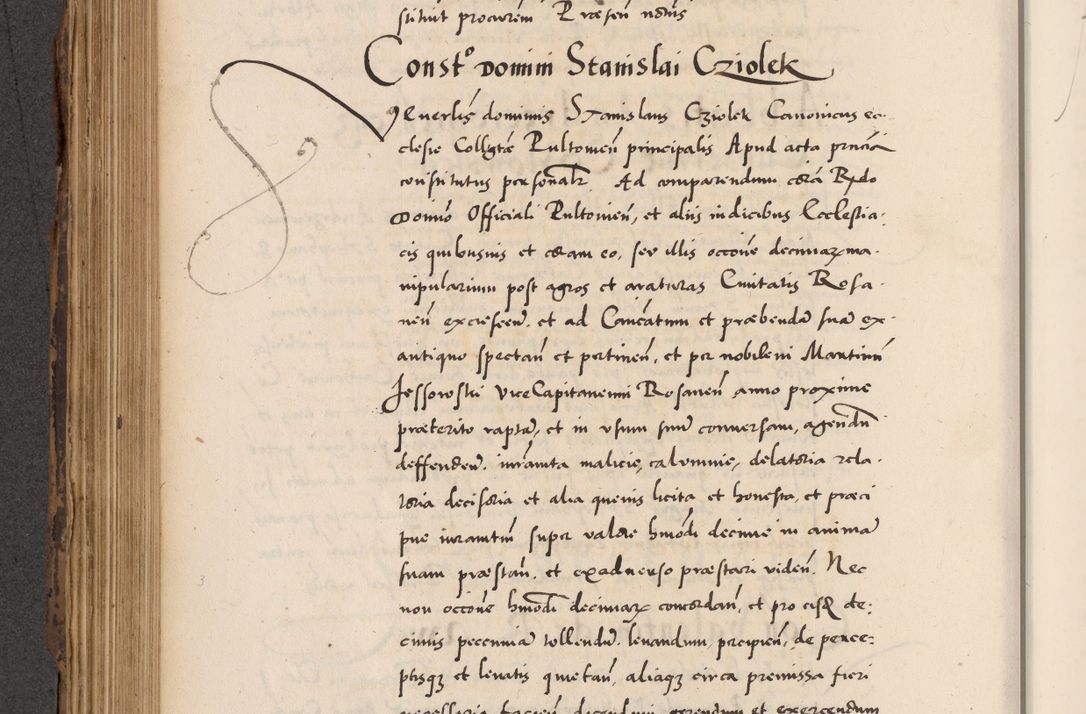 stituit procurem Presen notus
Const° domini Stanislai Cziolek
Querlis dominus Stanislaus Cziolek Canonicus ec-
clesie Collgtæ Pultovien principalis Apud acta prncia
constitutus personalr Ad comparendum cora Rdo
Domno Officiali Pultovien, et aliis iudicibus Ecclesia-
cis quibusuis et coram eo, seu illis occone decimar ma-
nipularium post agros et araturas Ciuitatis Rosa-
nen excrescen. et ad Canctum et præbenda sua ex
antiquo spectan et pertinen, et per nobilem Martinm
Jessowski ViceCapitaneum Rosanen anno proxime
præterito rapta, et in vsum suu conuersam, agendu
deffenden. iuramta malicie, calumnie, delatoria rela-
toria decisoria et alia queuis licita et honesta, et præci
pue iuramtm super valore hmodi decime in anima
suam præstan. et exaduerso præstari viden. Nec
non occone hmodi decimar concordan, et pro eisd de:
cimis peccunia tollendu. leuandum, precipien, de perce:
ptisq et leuatis quietan, aliaq circa premissa fieri
necessaria facien dicendum gerendum et exercendum